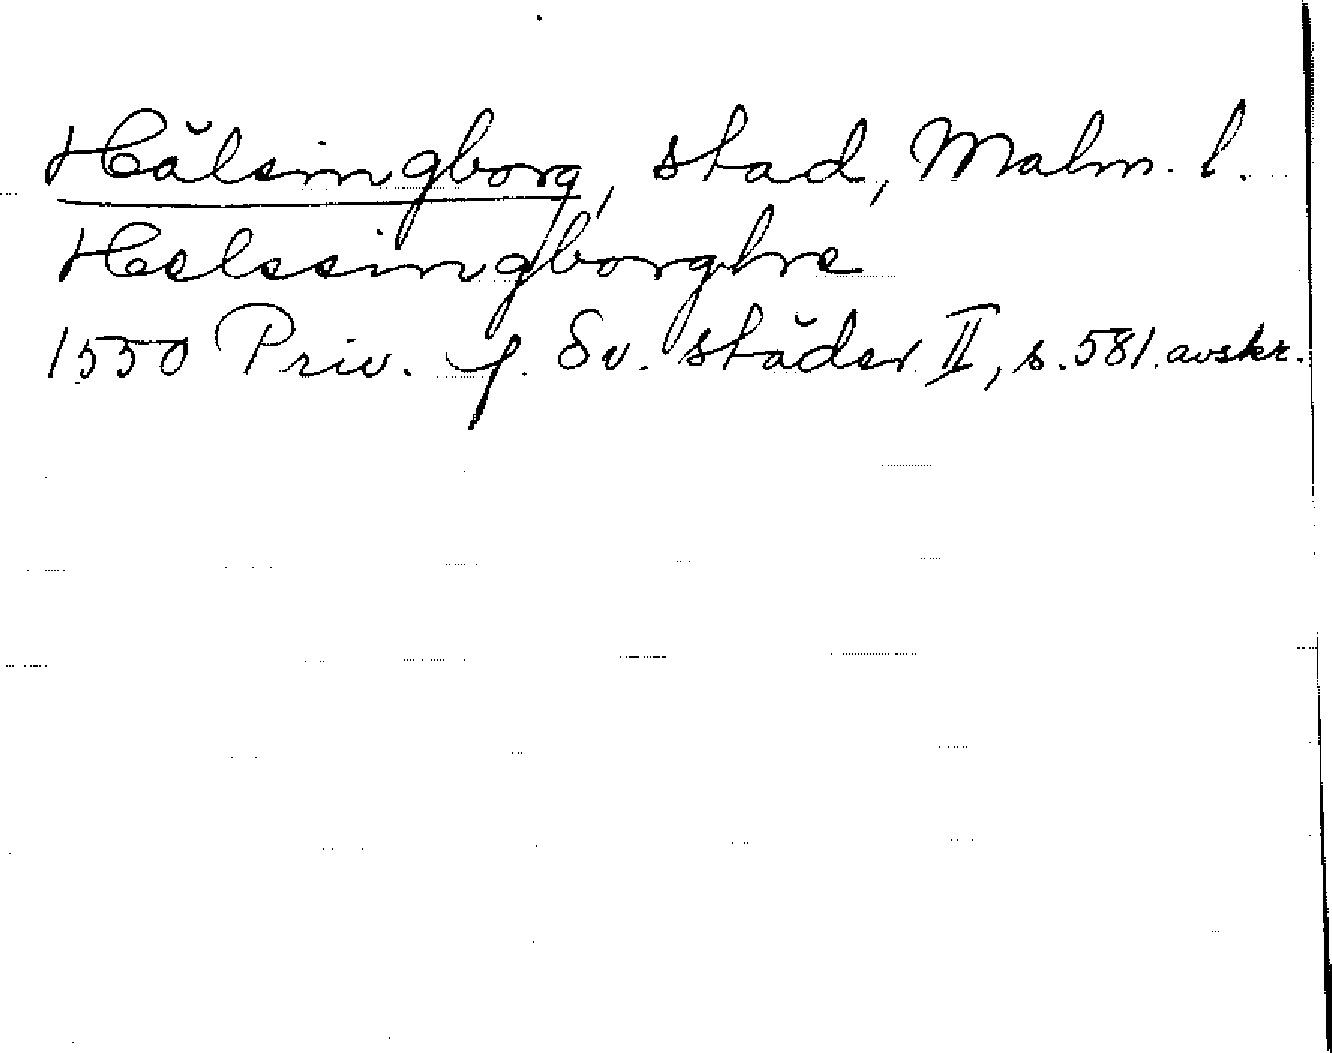 Hälsingborg, stad, Malm. l.
Helssingborghre
1550 Priv. f. Sv. städer II, s. 581. avskr.